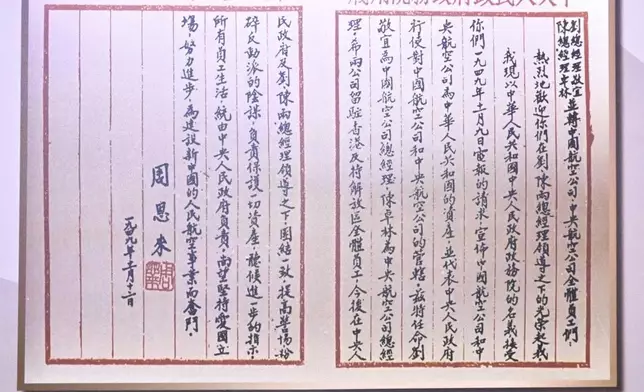 劉總經理敬宜
陳總經理卓林
並轉中國航空公司、中央航空公司全體員工們,
熱烈地歡迎你們在劉、陳兩總經理領導之下的光榮起義
我現以中華人民共和國中央人民政府政務院的名義接受
你們一九四九年十一月九日電報的請求,宣佈中國航空公司和中
央航空公司為中華人民共和國的資產,並代表中央人民政府
行使對中國航空公司和中央航空公司的管轄,茲特任命劉
敬宜為中國航空公司總經理,陳卓林為中央航空公司總經
理,希兩公司留駐香港及待解放區全體員工,今後在中央人
民政府及劉、陳兩總經理領導之下,團結一致,提高警惕,粉
碎反動派的陰謀,負責保護一切資產,聽候進一步的指示,
所有員工生活,統由中央人民政府負責,尚望堅持愛國立
場,努力進步,為建設新中國的人民航空事業而奮鬥。
周恩来
一九四九年十一月十二日